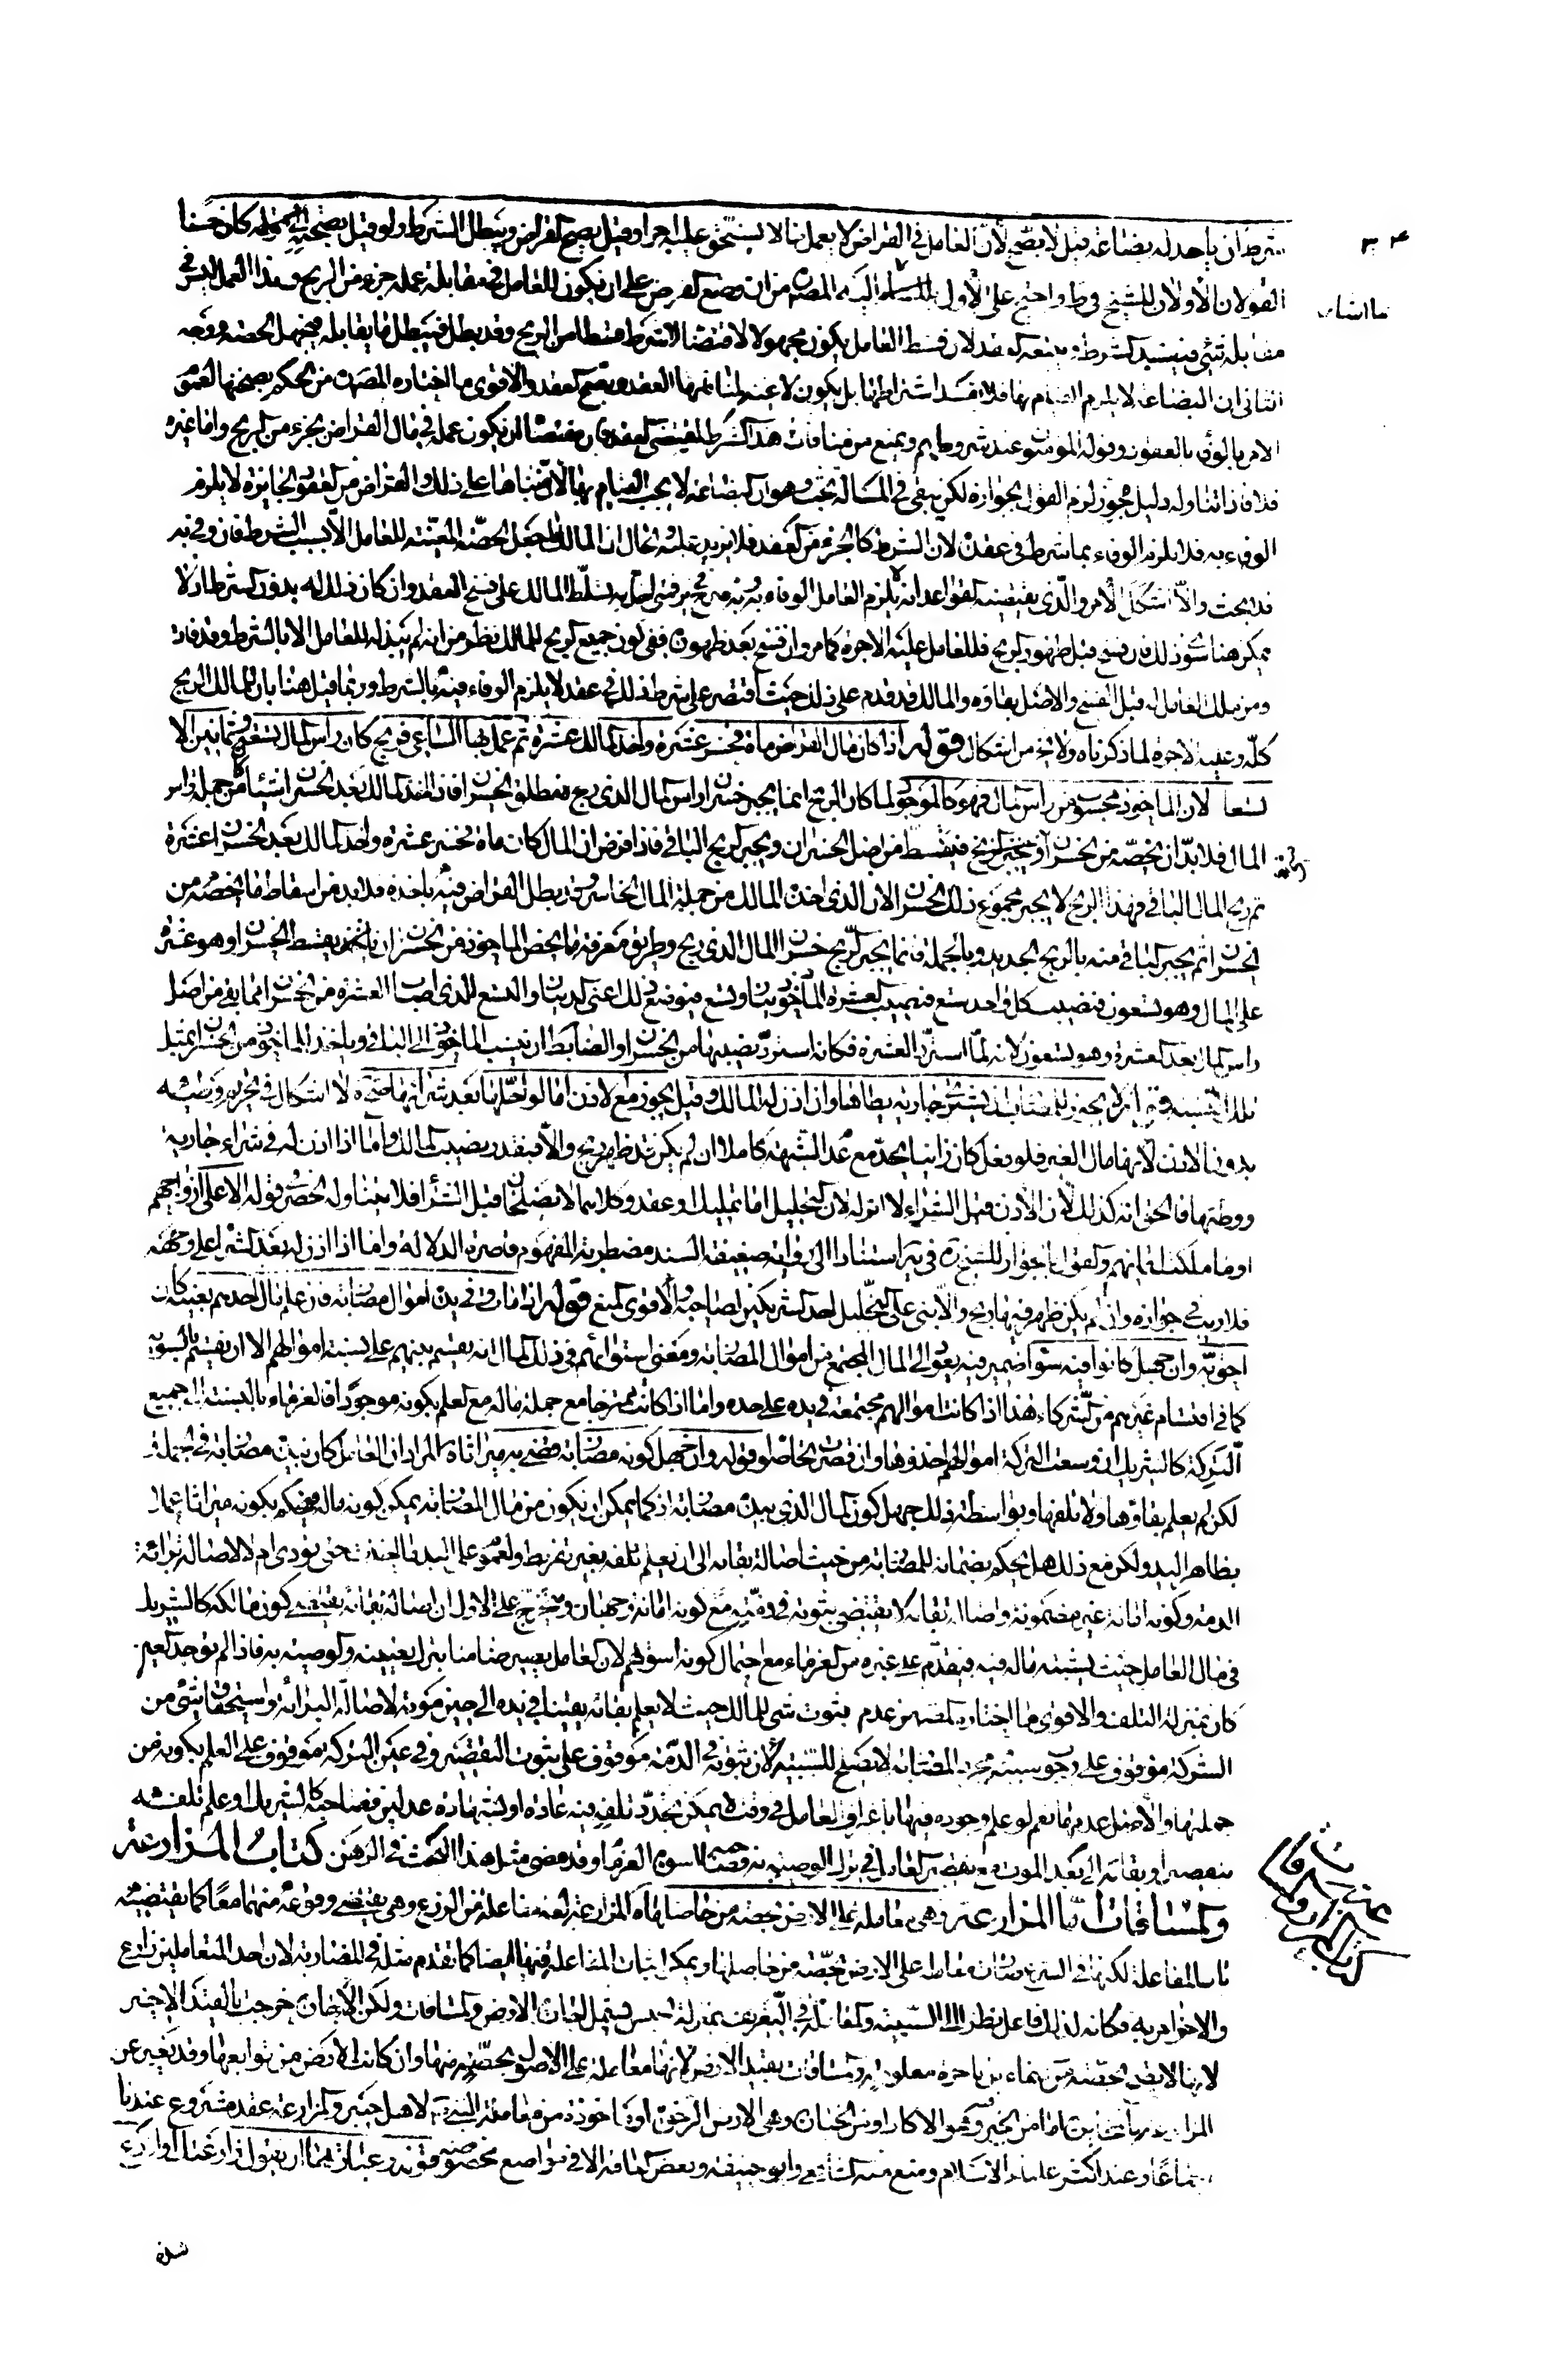 شرط ان ياخذ له بضاعة قيل لا يصح لأن العامل في القراض لا يعمل ما لا يستحق عليه اجرا وقيل يصح القراض ويبطل الشرط ولو قيل بصحتهما كان حسنا
القولان الأولان للشيخ في ط واحتج على الأول المصنف من ان وضع القراض على ان يكون للعامل في مقابلة عمله جزء من الربح وهذا العمل ليس في
مقابلته شئ فيفسد الشرط ويتبعه العقد لان قسط العامل يكون مجهولا لاقتضاء الشرط قسطا من الربح وقد بطل فيبطل ما يقابله فيجهل الحصة ووجه
الثاني ان البضاعة لا يلزم القيام بها فلا يفسد اشتراطها بل يكون لاغيا العقد ويصح العقد والاقوى ما اختاره المصنف من الحكم بصحتهما لعموم
الامر بالوفاء بالعقود وقوله المؤمنون عند شروطهم ويمنع من منافاة هذا الشرط لمقتضى العقد فان مقتضاه ان يكون عمله في مال القراض بجزء من الربح واما غيره
فلا فاذا تناوله دليل مجوز لزم القول بجوازه لكن يبقى في المسألة بحث وهو ان البضاعة لا يجب القيام بها لابتنائها على ذلك والقراض من العقود الجايزة لا يلزم
الوفاء به فلا يلزم الوفاء بما شرط في عقده لان الشرط كالجزء من العقد فلا يزيد عليه والحال ان المالك لم يجعل الحصة المعينة للعامل الا بسبب الشرط فان وفى به
فلا بحث والا اشكل الأمر والذي يقتضيه القواعد انه لا يلزم العامل الوفاء به فمتى اخل به تسلط المالك على فسخ العقد وان كان ذلك له بدون الشرط اذ لا
يمكن هنا سوى ذلك فان فسخ قبل ظهور الربح فللعامل عليه الاجرة كما مر وان فسخ بعد ظهوره ففي كون جميع الربح للمالك نظر من انه لم يبذله للعامل الا بالشرط وقد فات
ومن ملك العامل له قبل الفسخ والاصل بقاؤه والمالك قد قدم على ذلك حيث اقتصر على شرط ذلك في عقد لا يلزم الوفاء فيه بالشرط وربما قيل هنا بان للمالك الربح
كله وعليه الاجرة لما ذكرناه ولا يخ من اشكال قوله اذا كان مال القراض ماة فخسر عشرة واخذ المالك عشرة ثم عمل بها الساعي فربح كان راس المال تسعة وثمانين الا
تسعا لان الماخوذ محسوب من راس المال فهو كالموجود لما كان الربح انما يجبر خسران راس المال الذي ربح فمطلق الخسران فاذا اخذ المالك بعد الخسران شيئا من جملة راس
المال فلا بد ان يخصه من الخسران فيقسط من اصل الخسران ويجبر الربح الباقي فاذا فرض ان المال كان ماة فخسر عشرة واخذ المالك بعد الخسران عشرة
ثم ربح المال الباقي فهذا الربح لا يجبر مجموع ذلك الخسران لان الذي اخذه المالك من جملة المال الخاسر وقد بطل القراض فيه باخذه فلا بد من اسقاط ما يخصه من
الخسران ثم يجبر الباقي منه بالربح الجديد وبالجملة فانما يجبر الربح خسران المال الذي ربح وطريق معرفة ما يخص الماخوذ من الخسران ان يقسط الخسران وهو عشرة
على المال وهو تسعون فنصيب كل واحد تسع فنصيب العشرة الماخوذة دينار وتسع فيوضع ذلك اعني الدينار والتسع الذي اصاب العشرة من الخسران مما بقي من اصل
راس المال بعد العشرة وهو تسعون لانه لما استرد العشرة فكانه استرد نصيبها من الخسران والضابط ان ينسب الماخوذ الى الباقي وياخذ للماخوذ من الخسران بمثل
تلك النسبة قوله لا يجوز للمضارب ان يشتري جارية يطاها وان اذن له المالك وقيل يجوز مع الاذن اما لو احلها بعد شرائها صح لا اشكال في تحريم وطيه
بدون الاذن لانها مال الغير فلو فعل كان زانيا يحد مع عدم الشبهة كاملا ان لم يكن قد ظهر ربح والا فبقدر نصيب المالك واما اذا اذن له في شراء جارية
ووطئها فالحق انه كذلك لأن الاذن قبل الشراء لا اثر له لان التحليل اما تمليك او عقد وكلاهما لا يصلحان قبل الشراء فلا يتناوله الحصر في قوله الا على ازواجهم
او ما ملكت ايمانهم والقول بالجواز للشيخ ره في يه استنادا الى رواية ضعيفة السند مضطربة المفهوم قاصرة الدلالة واما اذا اذن له بعد الشراء على وجهه
فلا ريب في جوازه وان لم يكن ظهر فيها ربح والا بني على تحليل احد الشريكين لصاحبه والأقوى المنع قوله اذا مات وفي يده اموال مضاربة فان علم مال احدهم بعينه كان
احق به وان جهل كانوا فيه سواء ضمير فيه يعود الى المال المجتمع من اموال المضاربة ومعنى استوائهم في ذلك المال انه يقسم بينهم على نسبة اموالهم لا ان يقسم بالسوية
كما في اقتسام غيرهم من الشركاء هذا اذا كانت اموالهم مجتمعة في يده على حده واما اذا كانت ممتزجا مع جملة ماله مع العلم بكونه موجودا فالغرماء بالنسبة الى جميع
التركة كالشريك ان وسعت التركة اموالهم اخذوها وان قصرت تحاصوا قوله وان جهل كونه مضاربة قضى به ميراثا المراد ان العامل كان بيده مضاربة في الجملة
لكن لم يعلم بقاؤها ولا تلفها وبواسطة ذلك جهل كون المال الذي بيده مضاربة اذ كما يمكن ان يكون من مال المضاربة يمكن كونه ماله فيحكم بكونه ميراثا عملا
بظاهر اليد ولكن مع ذلك هل يحكم بضمانه للمضاربة من حيث اصالة بقائه الى ان يعلم تلفه بغير تفريط ولعموم على اليد ما اخذت حتى تؤدي ام لا لاصالة براءة
الذمة وكونه امانة غير مضمونة واصالة بقائه لا يقتضي ثبوته في ذمته مع كونه امانة وجهان ويتخرج على الاول ان اصالة بقائه يقتضي كون مالكه كالشريك
في مال العامل حيث يشتبه ماله فيه فيقدم على غيره من الغرماء مع احتمال كونه اسوتهم لان العامل يصير ضامنا بترك تعيينه والوصية به فاذا لم يوجد بعينه
كان بمنزلة التلف والاقوى ما اختاره المصنف من عدم ثبوت شئ للمالك حيث لا يعلم بقائه يقينا في يده الى حين موته لاصالة البراءة واستحقاق شئ من
التركة موقوف على وجود سببه ومجرد المضاربة لا يصلح للسببية لأن ثبوته في الذمة موقوف على ثبوت التقصير وفي عين التركة موقوف على العلم بكونه من
جملتها والأصل عدمهما نعم لو علم وجوده فيها باعتراف العامل في وقت لا يمكن تجدد تلف فيه عادة او بشهادة عدلين فصاحبه كالشريك او علم تلفه
بتقصير او بقائه الى بعد الموت مع تقصير العامل في ترك الوصية به فصاحبه اسوة الغرماء وقد مضى مثل هذا البحث في الرهن كتاب المزارعة
والمساقات اما المزارعة وهي معاملة على الارض بحصة من حاصلها المزارعة لغة مفاعلة من الزرع وهي يقتضي وقوعه منهما معا كما يقتضيه
باب المفاعلة لكنها في الشرع صارت معاملة على الارض بحصة من حاصلها ويمكن اثبات المفاعلة فيها ايضا كما تقدم مثله في المضاربة لان احد المتعاملين زارع
والاخر امر به فكانه لذلك فاعل نظرا الى السببية والمعاملة في التعريف بمنزلة الجنس يشمل اجارة الارض والمساقات ولكن الاجارة خرجت بالقيد الاخير
لانها لا تقيد بحصة من النماء بل باجرة معلومة والمساقات بقيد الارض لانها معاملة على الاصول بحصة من ثمرها وان كانت الارض من توابعها وقد يعبر عن
المزارعة بالمخابرة اما من الخبير وهو الاكار او من الخبار وهي الارض الرخوة او ماخوذة من معاملة النبي ص لاهل خيبر والمزارعة عقد مشروع عندنا
اجماعا وعند اكثر علماء الاسلام ومنع منه الشافعي وابو حنيفة وبعض العامة الا في مواضع مخصوصة قوله وعبارتها ان يقول زارعتك او ازرع